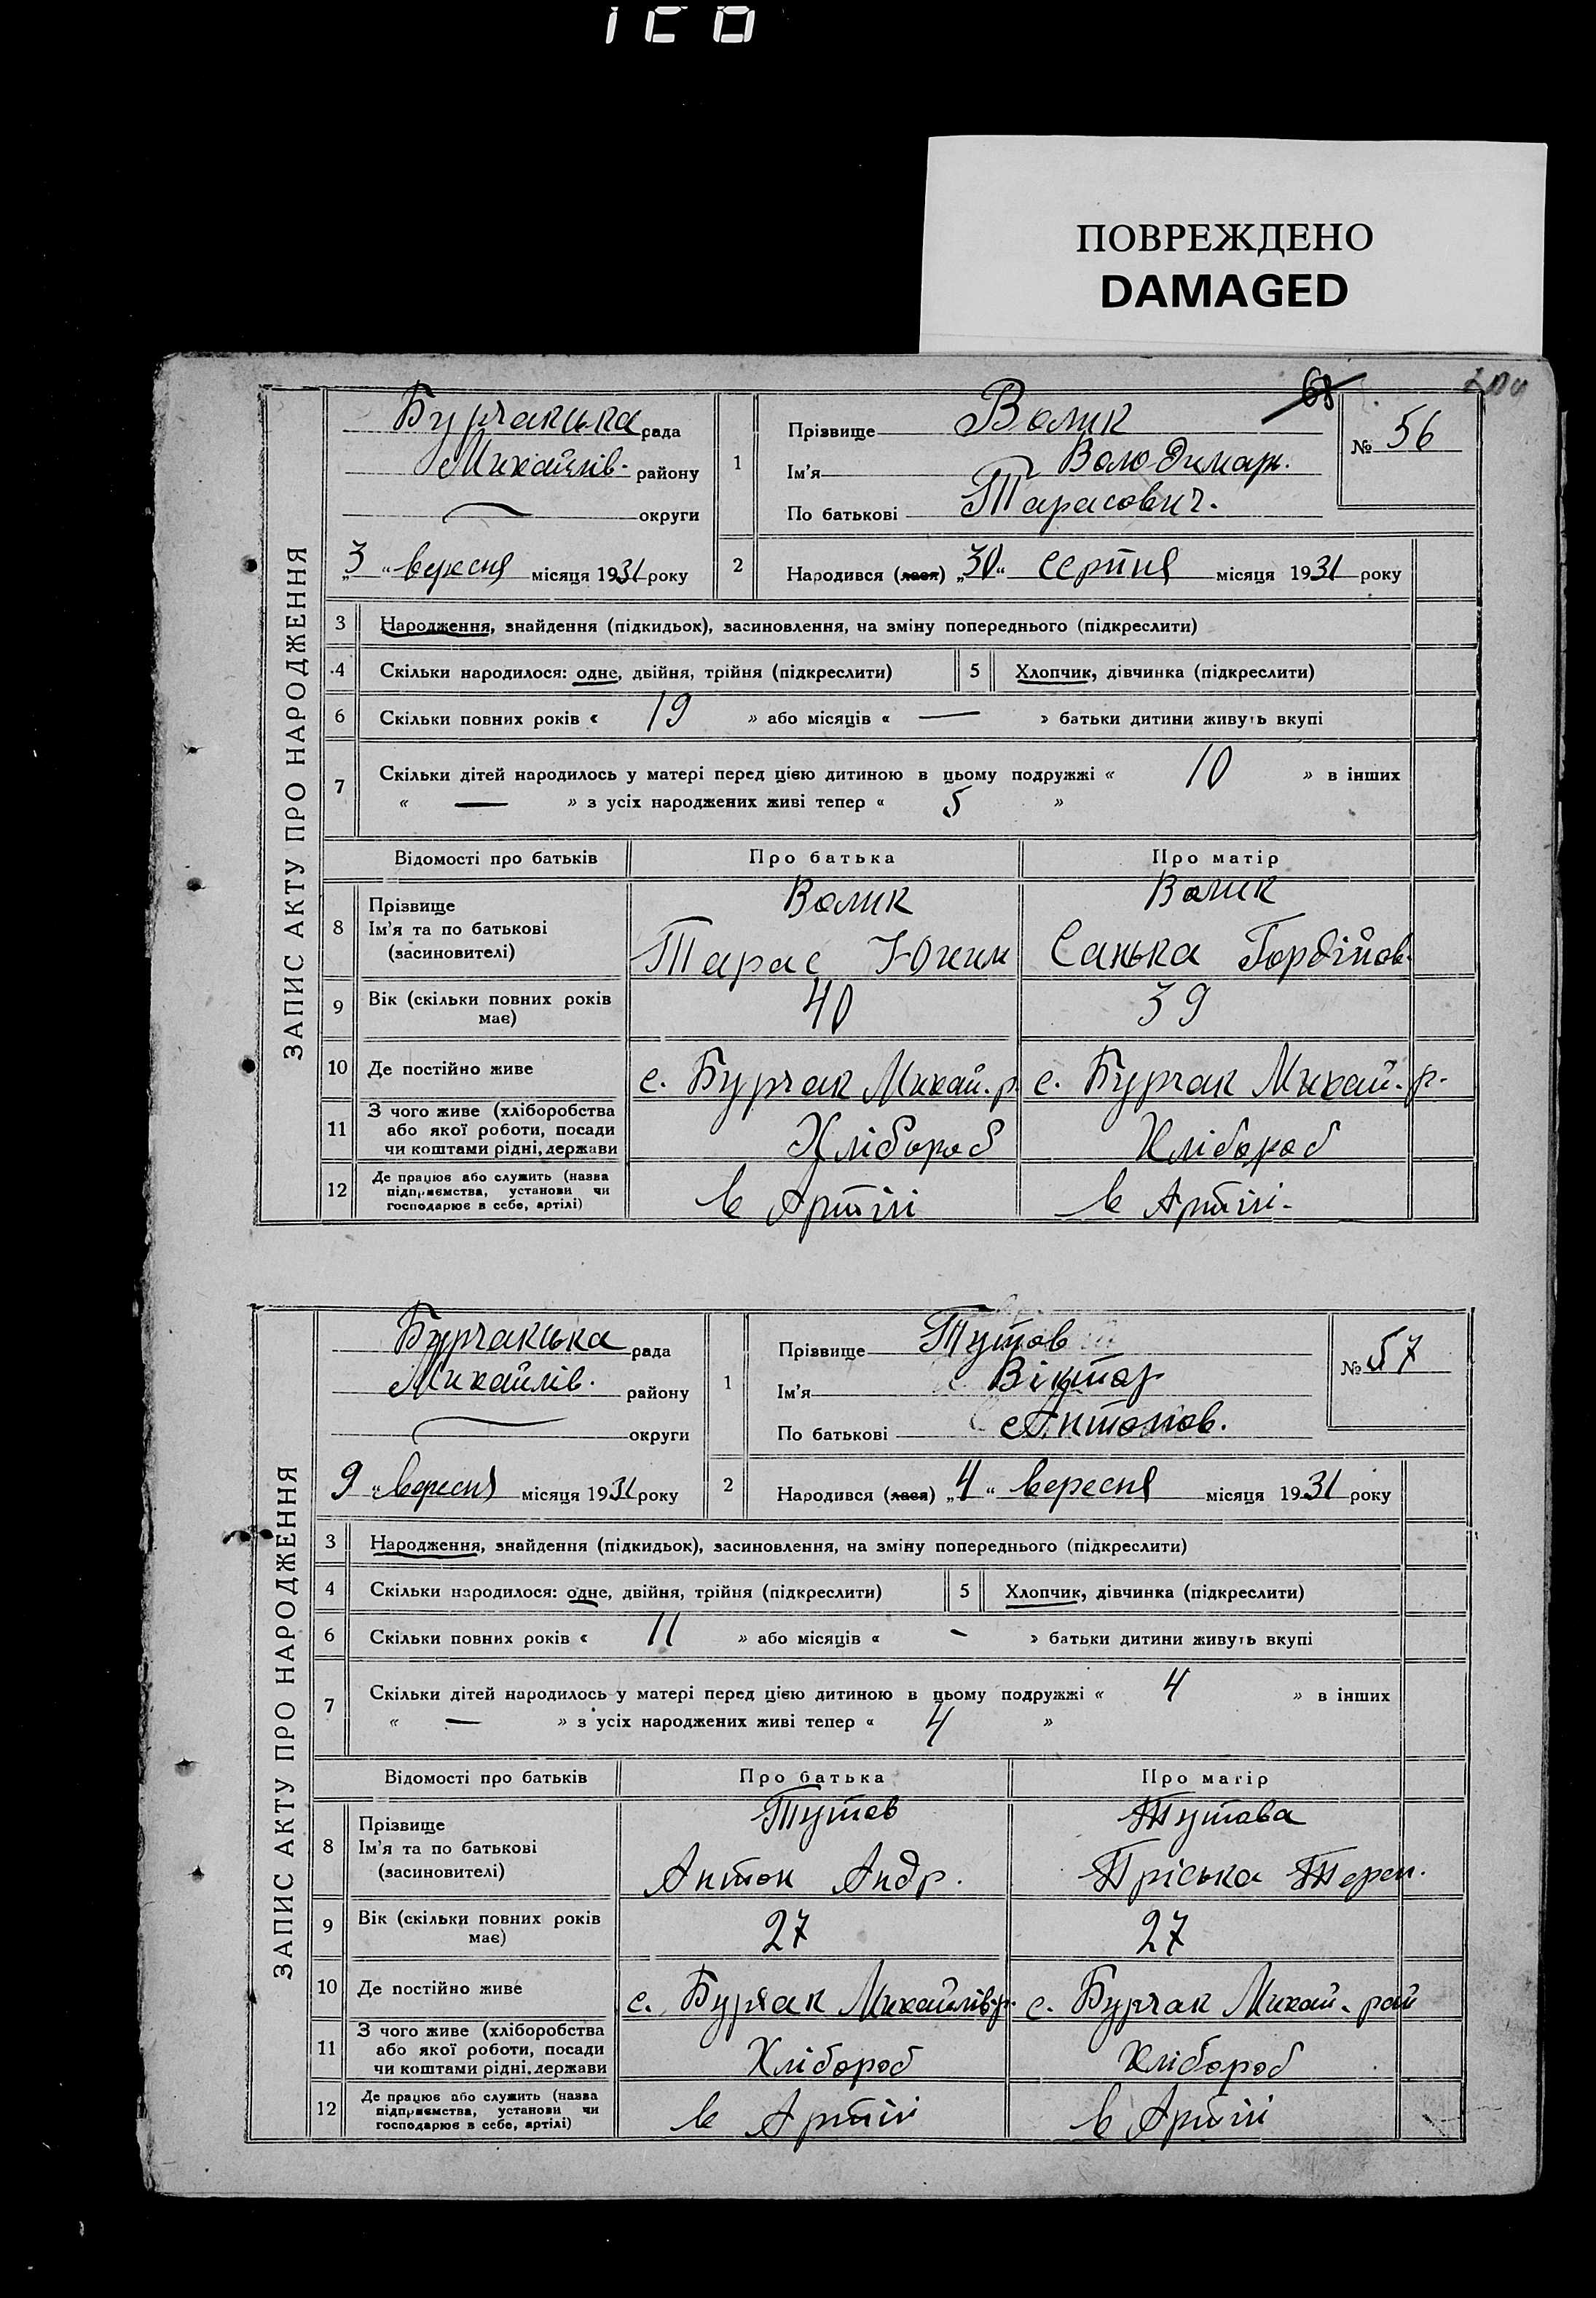 ПОВРЕЖДЕНО
DAMAGED
ЗАПИС АКТУ ПРО НАРОДЖЕННЯ
68
Бурчакська рада
Михайлів. району
— округи
„3“ вересня місяця 1931 року
1 Прізвище Волик
Ім'я Володимир.
По батькові Тарасович.
№ 56
2 Народився (лася) „30“ серпня місяця 1931 року
3 Народження, знайдення (підкидьок), засиновлення, на зміну попереднього (підкреслити)
4 Скільки народилося: одне, двійня, трійня (підкреслити) 5 Хлопчик, дівчинка (підкреслити)
6 Скільки повних років « 19 » або місяців « — » батьки дитини живуть вкупі
7 Скільки дітей народилось у матері перед цією дитиною в цьому подружжі « 10 » в інших
« — » з усіх народжених живі тепер « 5 »
Відомості про батьків Про батька Про матір
8 Прізвище Волик Волик
Ім'я та по батькові
(засиновителі) Тарас Юхим Санька Гордійов.
9 Вік (скільки повних років
має) 40 39
10 Де постійно живе с. Бурчак Михай. р. с. Бурчак Михай. р.
11 З чого живе (хліборобства
або якої роботи, посади
чи коштами рідні, держави Хлібороб Хлібороб
12 Де працює або служить (назва
підприємства, установи чи
господарює в себе, артілі) в Артілі в Артілі.
ЗАПИС АКТУ ПРО НАРОДЖЕННЯ
Бурчакська рада
Михайлів. району
— округи
9 “ вересня місяця 1931 року
1 Прізвище Тутов
Ім'я Віктор
По батькові Антонов.
№ 57
2 Народився (лася) „4“ вересня місяця 1931 року
3 Народження, знайдення (підкидьок), засиновлення, на зміну попереднього (підкреслити)
4 Скільки народилося: одне, двійня, трійня (підкреслити) 5 Хлопчик, дівчинка (підкреслити)
6 Скільки повних років « 11 » або місяців « - » батьки дитини живуть вкупі
7 Скільки дітей народилось у матері перед цією дитиною в цьому подружжі « 4 » в інших
« — » з усіх народжених живі тепер « 4 »
Відомості про батьків Про батька Про матір
8 Прізвище Тутов Тутова
Ім'я та по батькові
(засиновителі) Антон Андр. Пріська Терен.
9 Вік (скільки повних років
має) 27 27
10 Де постійно живе с. Бурчак Михайлів.р. с. Бурчак Михай. рай
11 З чого живе (хліборобства
або якої роботи, посади
чи коштами рідні, держави Хлібороб Хлібороб
12 Де працює або служить (назва
підприємства, установи чи
господарює в себе, артілі) в Артілі в Артілі